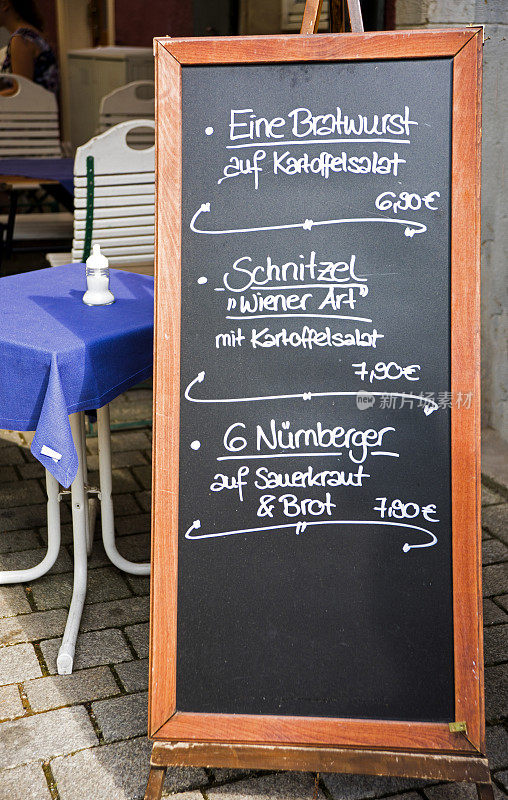 • Eine Bratwurst
auf Kartoffelsalat
6,90€
• Schnitzel
"Wiener Art"
mit Kartoffelsalat
7,90€
• 6 Nürnberger
auf Sauerkraut
& Brot
7,90€